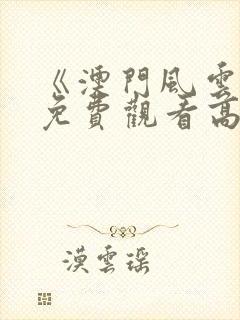 《澳門風雲
免費觀看高
漠雲瑤